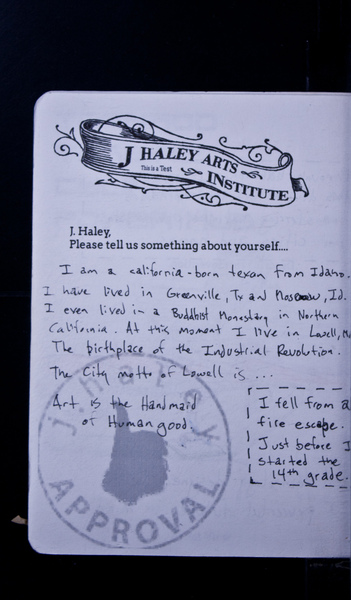 J HALEY ARTS
This is a Test
INSTITUTE
J. Haley,
Please tell us something about yourself....
I am a california-born texan from Idaho.
I have lived in Greenville, Tx and Moscow, Id.
I even lived in a Buddhist Monastary in Northern
California. At this moment I live in Lowell, Ma
The birthplace of the Industrial Revolution.
The City motto of Lowell is ...
Art is the Handmaid
of Human good.
I fell from a
fire escape.
Just before I
started the
14th grade.
j. haley
APPROVAL